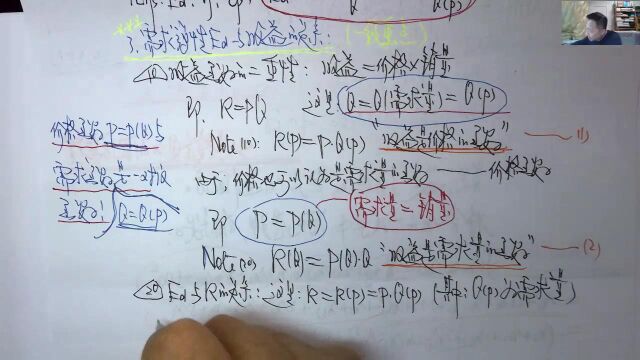 3. 需求弹性Ed与收益的关系:
(1) 收益函数的二重性: 收益=价格×销量
即. R=PQ 这里 Q=Q(需求量)=Q(p)
Note(10): R(p)=P·Q(p) "收益是价格的函数" ——(1)
由于, 价格也可以认为是需求量的函数 —— 价格函数
即 P=P(Q) 需求量=销量
Note(20): R(Q)=P(Q)·Q "收益是需求量的函数" ——(2)
(2) Ed与R的关系: 这里: R=R(p)=P·Q(p) (其中: Q(p)为需求量)
价格函数P=P(Q)与
需求函数是一对反
函数! Q=Q(p)